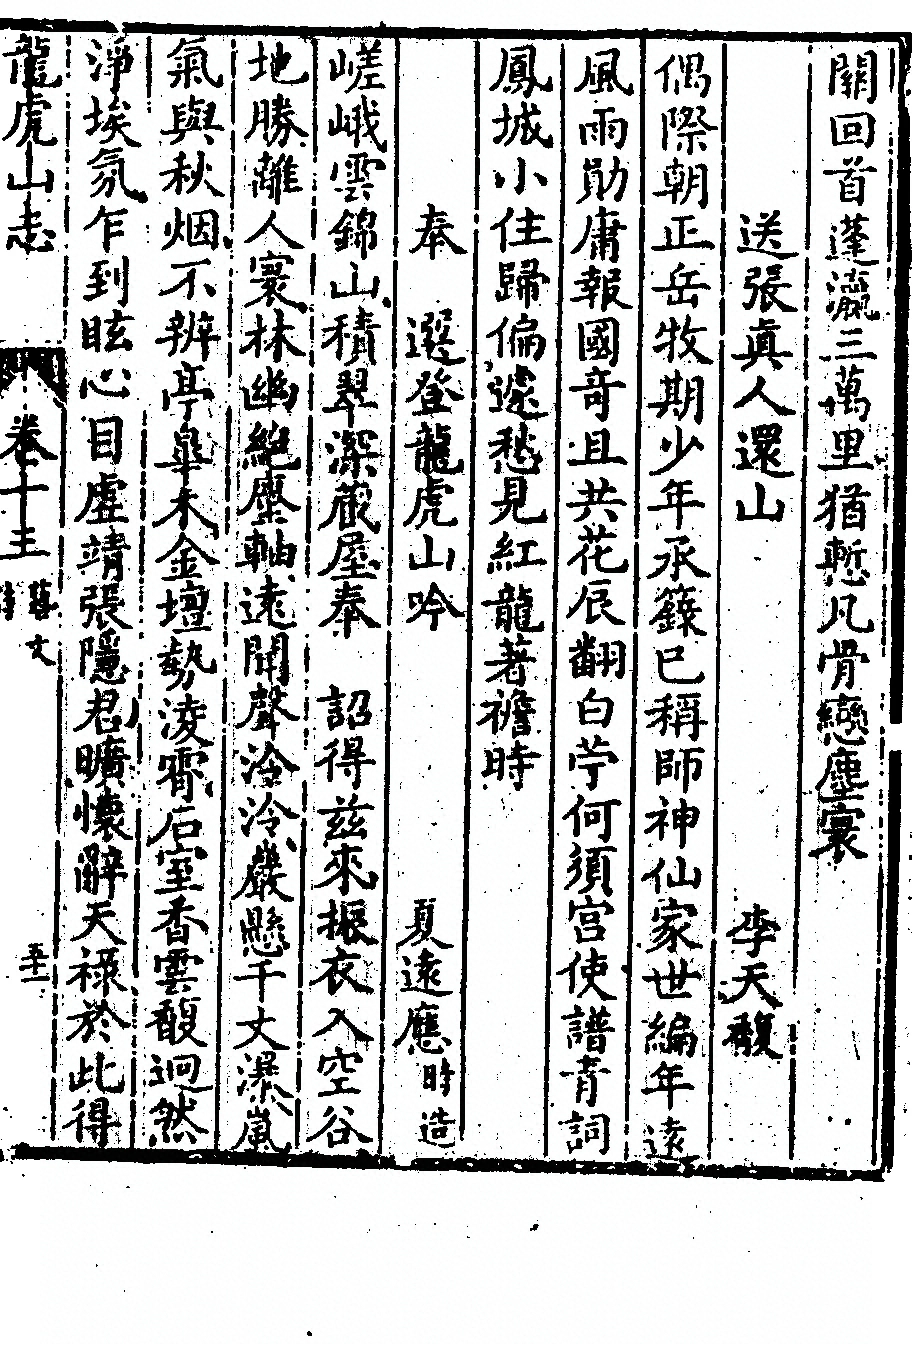 關回首蓬瀛三萬里猶慙凡骨戀塵寰
送張眞人還山　李天馥
偶際朝正岳牧期少年承籙已稱師神仙家世編年遠
風雨勛庸報國奇且共花辰翻白苧何須宫使譜青詞
鳳城小住歸偏遽愁見紅龍著襜時
奉　選登龍虎山吟　夏遠應時造
嵯峨雲錦山積翠深蔵屋奉　詔得兹來振衣入空谷
地勝離人寰林幽絕塵軸遠聞聲泠泠巖懸千丈瀑嵐
氣與秋烟不辨亭臯木金壇勢淩霄石室香雲馥迥然
淨埃氛乍到眩心目虛靖張隱君曠懷辭天祿於此得
龍虎山志　卷十三　藝文　五十二